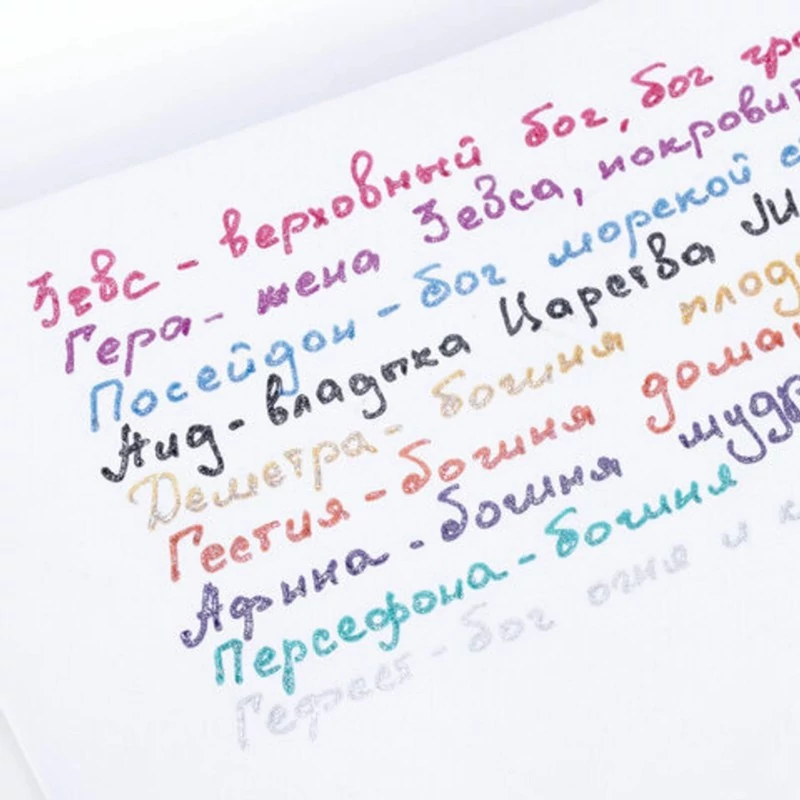 Зевс - верховный бог, бог гро
Гера - жена Зевса, покровит
Посейдон - бог морской с
Аид - владыка Царства Ми
Деметра - богиня плодо
Гестия - богиня домаш
Афина - богиня мудр
Персефона - богиня
Гефест - бог огня и к